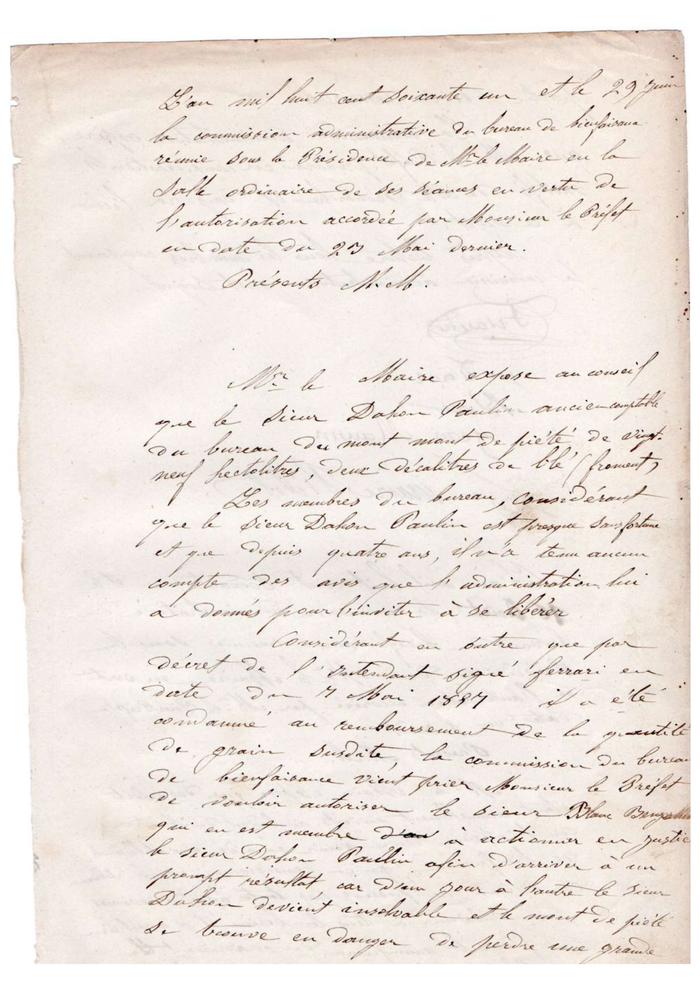 L'an mil huit cent soixante un et le 29 Juin
la commission administrative du bureau de bienfaisance
réunie sous la Présidence de Mr le Maire en la
Salle ordinaire de ses séances en vertu de
l'autorisation accordée par Monsieur le Préfet
en date du 23 Mai dernier.
Présents M.M.
Mr le Maire expose au conseil
que le Sieur Dahon Paulin ancien comptable
du bureau du mont mont de piété de vingt-
neuf hectolitres, deux décalitres de blé (froment)
Les membres du bureau, considérant
que le Sieur Dahon Paulin est presque sans fortune
et que depuis quatre ans, il n'a tenu aucun
compte des avis que l'administration lui
a donnés pour l'inviter à se libérer
Considérant en outre que par
décret de l'Intendant signé ferrari en
date du 7 Mai 1857 il a été
condamné au remboursement de la quantité
de grain susdite, la commission du bureau
de bienfaisance vient prier Monsieur le Préfet
de vouloir autoriser le Sieur Blanc
qui en est membre à actionner en justice
le Sieur Dahon Paulin afin d'arriver à un
prompt résultat, car d'un jour à l'autre le Sieur
Dahon devient insolvable et le mont de piété
se trouve en danger de perdre une grande